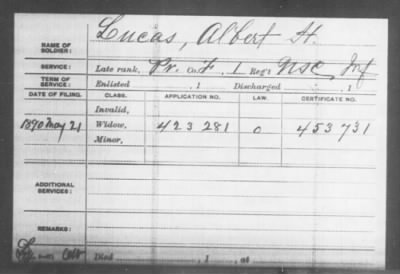 Lucas, Albert H.
NAME OF SOLDIER:
SERVICE: Late rank, Pr. Co. F, 1 Reg't USC Inf
TERM OF SERVICE: Enlisted , 1 Discharged , 1
DATE OF FILING. CLASS. APPLICATION NO. LAW. CERTIFICATE NO.
Invalid,
1890 May 21 Widow, 423 281 O 453 731
Minor,
ADDITIONAL SERVICES:
REMARKS:
Died , 1 , at